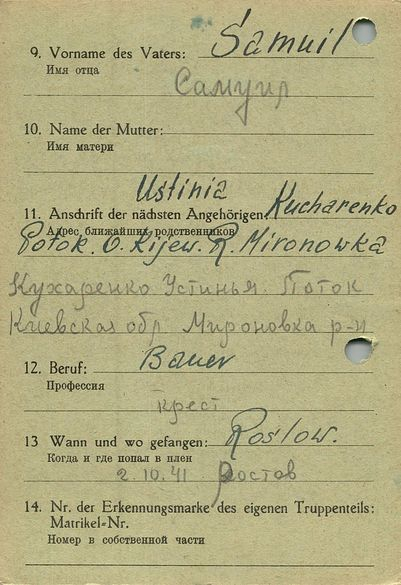 9. Vorname des Vaters: Samuil
Имя отца
Самуил
10. Name der Mutter:
Имя матери
Ustinia Kucharenko
11. Anschrift der nächsten Angehörigen
Адрес ближайших родственников
Potok. O. Kijew. R. Mironowka
Кухаренко Устинья. Поток
Киевская обл Мироновка р-н
12. Beruf: Bauer
Профессия
крест
13 Wann und wo gefangen: Roslow.
Когда и где попал в плен
2.10.41 Ростов
14. Nr. der Erkennungsmarke des eigenen Truppenteils:
Matrikel-Nr.
Номер в собственной части